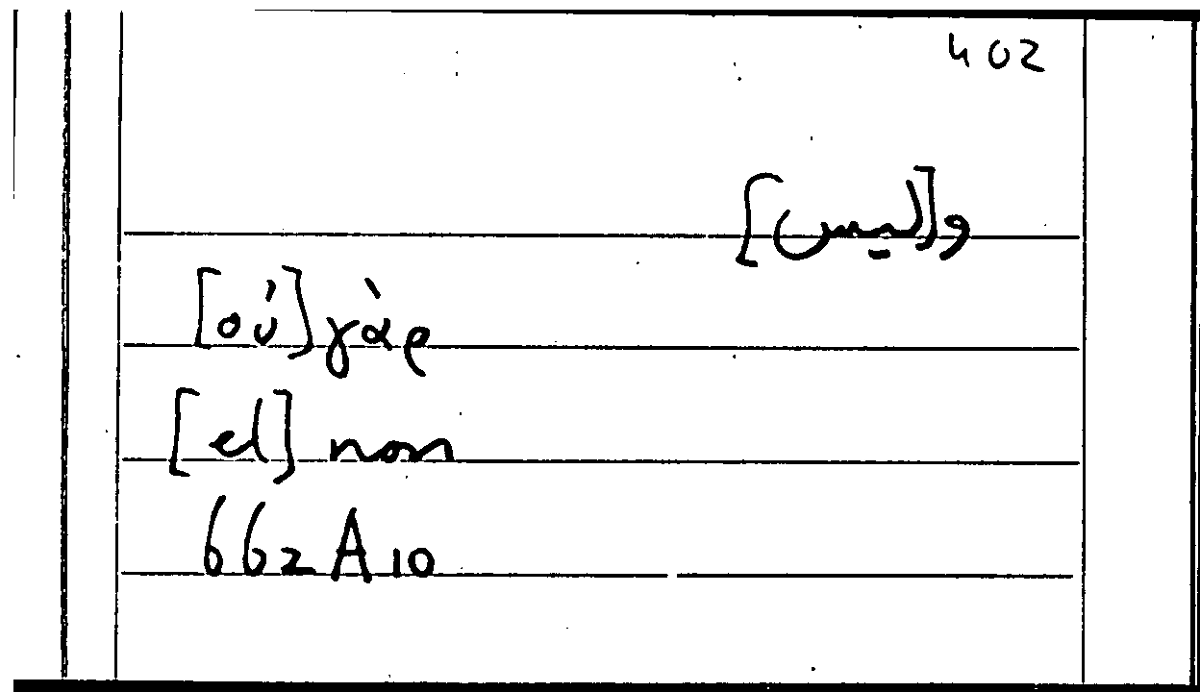 402
و[ليس]
[οὐ] γὰρ
[et] non
662 A 10